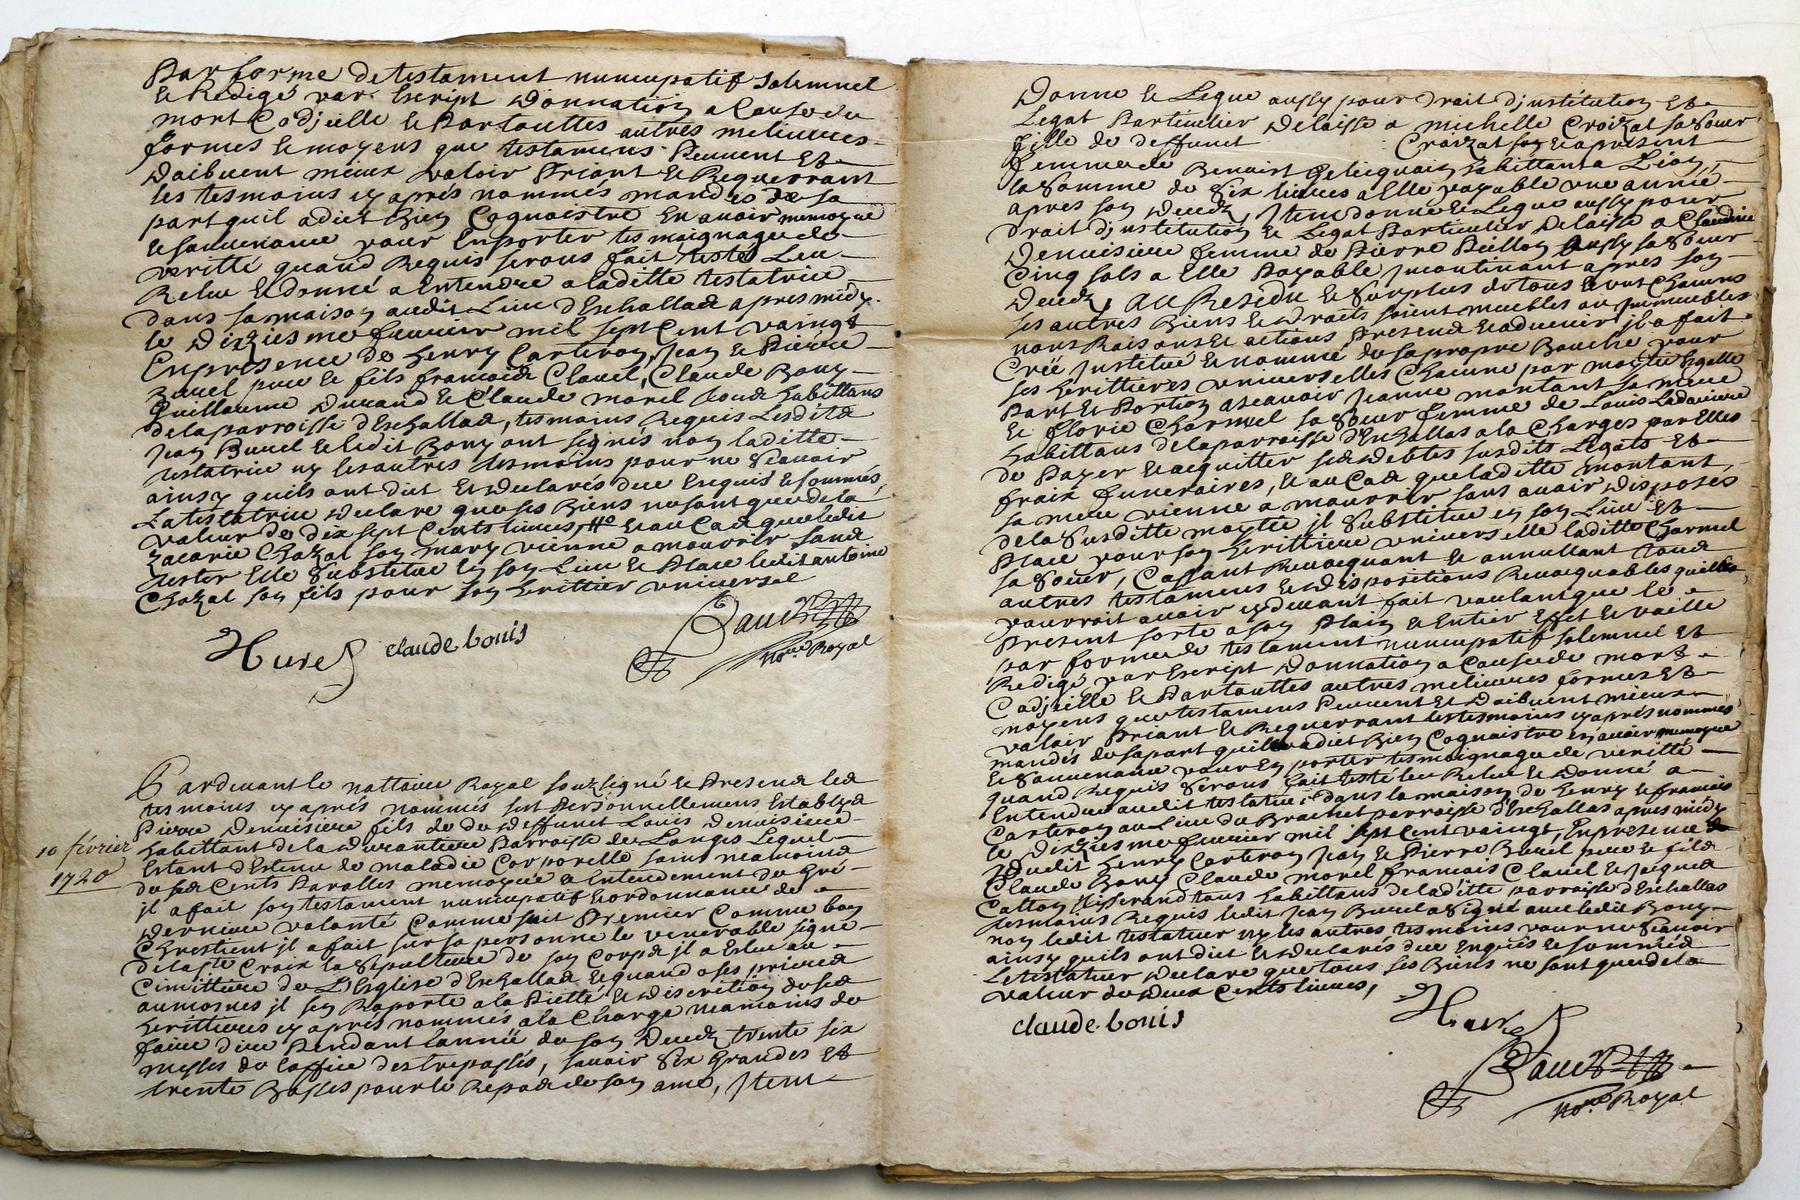 Par forme de testament nuncupatif solemnel
et Redigé par Escript donnation a Cause de
mort Codjcille et Partouttes autres melieures
formes et moyens que testamens Peuvent Et
doibuent mieux valoir Priant et Requerrant
les tesmoins cy aprés nommés mandés de sa
part quil a dict Bien Cognoistre En auoir memoyre
et souuenance pour En porter tesmoignage de
veritté quand Requis seront fait testé Leu
Releu et donné a Entendre a laditte testatrice
dans sa maison audit Lieu d'Eschallas apres midy
le dixiesme feurier mil sept Cent vaingt
En presence de henry Carteron, Jean et Pierre
Buuel pere et fils francois Clauel, Claude Bony
Guillaume durand et Claude morel tous habittans
de la parroisse d'Eschallas, tesmoins Requis Lesdits
Jean Buuel et ledit Bony ont signés non laditte
testatrice ny les autres tesmoins pour ne scauoir
ainsy quils ont dict et declarés de ce Enquis et sommés
La testatrice declare que ses Biens ne sont que de la
valeur de dix sept Cents liures, et au Cas que ledit
Zacarie Chazal son mary vienne a mourir sans
tester Elle substitue En son Lieu et Place ledit antoine
Chazal son fils pour son herittier vniuersel
claude bonis
no.re Royal
Pardeuant le nottaire Royal soubsigné et Presens les
tesmoins cy aprés nommés sest Personnellement Establys
Pierre denuisiere fils de deffunct Louis denuisiere
habittant de la Parroisse de Longes Lequel
Estant destenu de maladie Corporelle sains neamoins
de ses Cents Parolles memoyre et Entendement de gré
il a fait son testament nuncupatif et ordonnance de
derniere volonté Comme suit Premier Comme bon
Chrestient il a fait sur sa personne le venerable signe
de la ste Croix la sepulture de son Corps il a Esleu au
Cimittiere de L'Eglise d'Eschallas et quand a ses prieres
aumosnes il sen Raporte a la Pietté et discretion de ses
herittieres cy aprés nommés a la Charge neamoins de
faire dire Pendant L'année de son decedz trente six
messes de l'office des trepassés, scauoir six grandes et
trente Basses pour le Repos de son ame, Jtem
10 février
1720
donne et Legue aussy pour droit d'jnstitution et
Legat Particulier delaisse a michelle Croizat sa soeur
fille de deffunct Croizat
femme de Benoist habittant a Lion
la somme de six liures a Elle payable vne année
apres son decedz, Jtem donne et Legue aussy pour
droit d'jnstitution et Legat Particulier delaisse a Claudine
denuisiere femme de Pierre Pellon aussy sa soeur
Cinq sols a Elle Payable jncontinant apres son
decedz, au Residu et surplus de tous et vnt Chacuns
ses autres Biens et droits soient meubles ou jmmeubles
noms Raisons et actions, Presens et aduenir il a fait
Créé Jnstitué et nommé de sa propre Bouche pour
ses herittieres vniuerselles Chacune par moytié Egalle
Part et Portion ascauoir Jeanne montant sa mere
et florie Charmel sa soeur femme de Louis
habittans de la parroisse d'Eschallas a la Charges par Elles
de Payer et acquitter ses debtes susdits Legats et
fraix funeraires, et au Cas que laditte montant,
sa mere vienne a mourir sans auoir disposés
de la susditte moytié il substitue en son Lieu et
Place pour son herittiere vniuerselle laditte Charmel
sa soeur, Cassant Reuocquant et annullant tous
autres testamens et dispositions Reuocquables quil
pourroit auoir cy deuant fait voulant que le
Present sorte a son Plain et Entier Effet et vaille
par forme de testament nuncupatif solemnel et
Redigé par Escript donnation a Cause de mort
Codjcille et Partouttes autres melieures formes et
moyens que testamens Peuuent et doibuent mieux
valoir Priant et Requerrant les tesmoins cy aprés nommés
mandés de sa part quil a dict Bien Cognoistre en auoir memoyre
et souuenance pour en porter tesmoignage de veritté
quand Requis seront fait testé leu Releu et donné a
Entendre audit testateur dans la maison de henry et francois
Carteron au Lieu du Brachet parroisse d'Eschallas apres midy
le dixiesme feurier mil sept Cent vaingt, En presence
dudit henry Carteron Jean et Pierre Buuel pere et fils
Claude Bony Claude morel francois Clauel et Jacques
Catton tisserand tous habittans de laditte parroisse d'Eschallas
tesmoins Requis ledit Jean Buuel a signé auec ledit Bony
non ledit testateur ny les autres tesmoins pour ne scauoir
ainsy quils ont dict et declarés de ce Enquis et sommés
Le testateur declare que tous ses Biens ne sont que de la
valeur de deux Cents liures,
claude bonis
no.re Royal